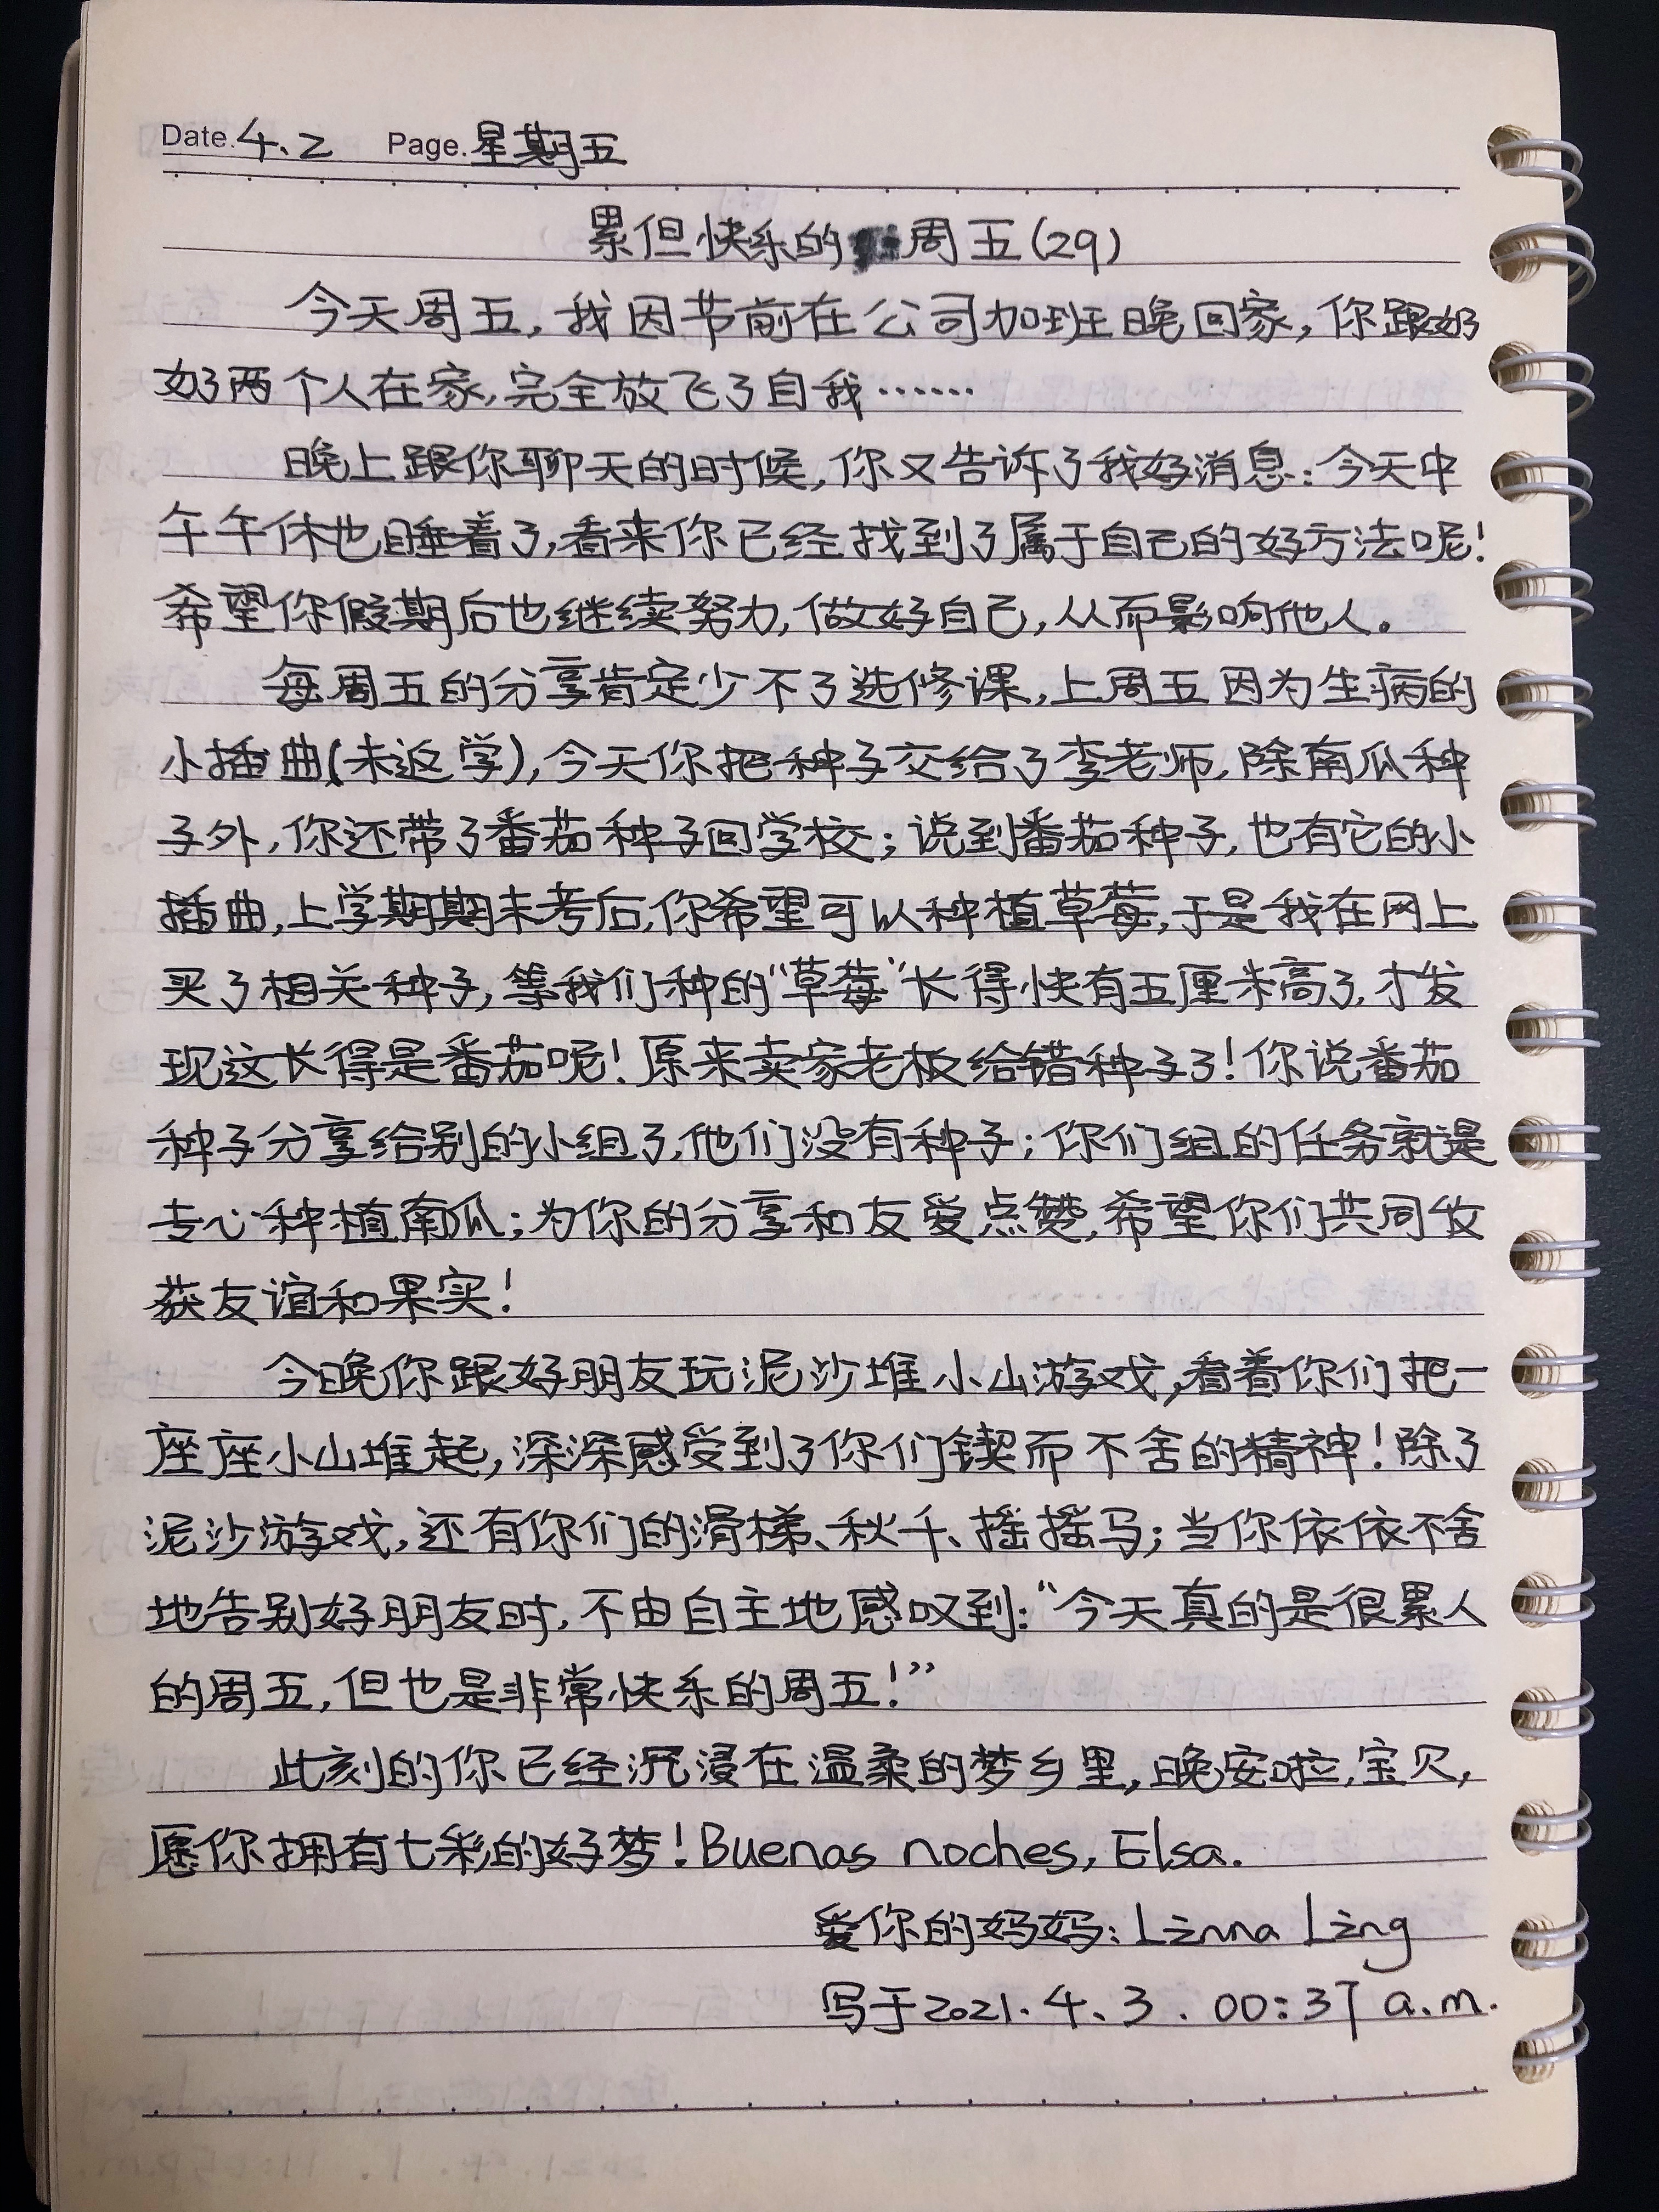 Date.4.2 Page.星期五
累但快乐的周五(29)
今天周五,我因节前在公司加班晚回家,你跟奶
奶两个人在家,完全放飞了自我……
晚上跟你聊天的时候,你又告诉了我好消息:今天中
午午休也睡着了,看来你已经找到了属于自己的好方法呢!
希望你假期后也继续努力,做好自己,从而影响他人。
每周五的分享肯定少不了选修课,上周五因为生病的
小插曲(未返学),今天你把种子交给了李老师,除南瓜种
子外,你还带了番茄种子回学校;说到番茄种子,也有它的小
插曲,上学期期末考后,你希望可以种植草莓,于是我在网上
买了相关种子,等我们种的“草莓”长得快有五厘米高了,才发
现这长得是番茄呢!原来卖家老板给错种子了!你说番茄
种子分享给别的小组了,他们没有种子;你们组的任务就是
专心种植南瓜;为你的分享和友爱点赞,希望你们共同收
获友谊和果实!
今晚你跟好朋友玩泥沙堆小山游戏,看着你们把一
座座小山堆起,深深感受到了你们锲而不舍的精神!除了
泥沙游戏,还有你们的滑梯、秋千、摇摇马;当你依依不舍
地告别好朋友时,不由自主地感叹到:“今天真的是很累人
的周五,但也是非常快乐的周五!”
此刻的你已经沉浸在温柔的梦乡里,晚安啦,宝贝,
愿你拥有七彩的好梦!Buenas noches, Elsa.
爱你的妈妈:Linna Ling
写于2021.4.3.00:37 a.m.